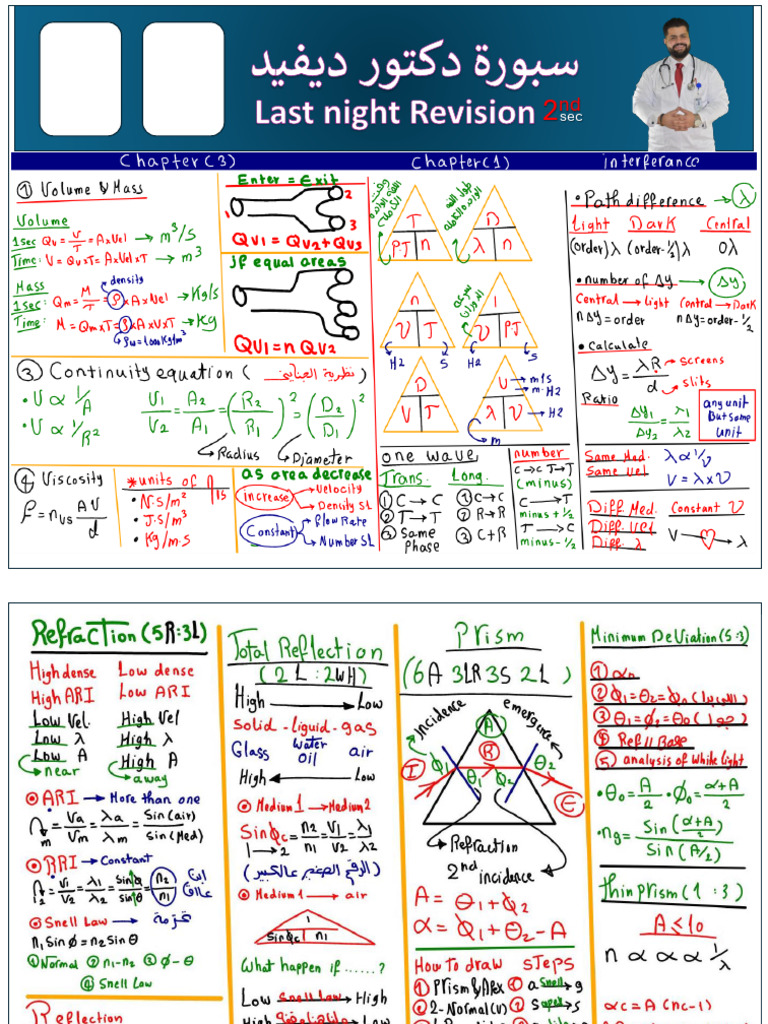 سبورة دكتور ديفيد
Last night Revision 2nd sec
Chapter(3)
① Volume & Mass
Volume
1sec Qv = V/T = A×Vel → m³/S
Time: V = Qv×T = A×Vel×T → m³
Mass
density
1sec: Qm = M/T = ρ×A×Vel → Kg/s
Time: M = Qm×T = ρ×A×V×T → Kg
ρw = 1000 Kg/m³
Enter = Exit
1
2
3
Qv1 = Qv2 + Qv3
if equal areas
Qv1 = n Qv2
③ Continuity equation ( )
• V ∝ 1/A
• V ∝ 1/R²
V1/V2 = A2/A1 = (R2/R1)² = (D2/D1)²
Radius
Diameter
④ Viscosity
F = ηvs AV/d
* units of ηvs
• N·S/m²
• J·S/m³
• Kg/m·S
as area decrease
increase
Velocity
Density SL
Constant
flow Rate
Number SL
Chapter(1)
T
PT n
D
λ n
n
ν T
Hz S
1
ν PT
Hz S
D
V T
V
λ ν
m/s
m·Hz
Hz
m
one wave
Trans.
① C → C
② T → T
③ Same phase
Long.
① C → C
② R → R
③ C + R
number
C→C T→T
(minus)
C → T
minus + 1/2
T → C
minus - 1/2
interferance
• Path difference → λ
Light Dark Central
(order)λ (order-1/2)λ 0λ
• number of Δy → Δy
Central → Light Central → Dark
nΔy = order nΔy = order-1/2
• Calculate
Δy = λR/d
screens
slits
Ratio
Δy1/Δy2 = λ1/λ2
any unit
But same
unit
Same Med.
Same vel
λ ∝ 1/ν
V = λ×ν
Diff Med.
Diff Vel
Diff. λ
Constant ν
V → λ
Refraction (5R:3L)
High dense Low dense
High ARI Low ARI
Low Vel. High Vel
Low λ High λ
Low A High A
near away
ARI → More than one
n m = Va/Vm = λa/λm = Sin(air)/Sin(Med)
RRI → Constant
1n2 = V1/V2 = λ1/λ2 = sinϕ/sinθ = n2/n1
Snell Law → قزمة
n1 Sinϕ = n2 Sinθ
① Normal ② n1-n2 ③ ϕ-θ
④ Snell Law
Reflection
Total Reflection
(2L:2WH)
High → Low
solid - liquid - gas
Glass water oil air
High ← Low
Medium 1 → Medium 2
Sinϕc = n2/n1 = V1/V2 = λ1/λ2
1 → 2
(الرقم الصغير عالكبير)
Medium 1 → air
1
sinϕc n1
What happen if ......?
Low Snell Law → High
Prism
(6A 3LR 3S 2L)
incidence
emergence
A
R
I
ϕ1 θ1 ϕ2 θ2
E
Refraction
2nd incidence
A = θ1 + ϕ2
α = ϕ1 + θ2 - A
How to draw steps
① Prism & Apex ① a snell→ g
② 2-Normal(v)
Minimum Deviation (5:3)
① αo
② ϕ1 = θ2 = ϕo
③ θ1 = ϕ2 = θo
④ Ref // Base
⑤ analysis of white light
• θo = A/2 • ϕo = (α+A)/2
• ng = Sin((α+A)/2)/Sin(A/2)
thin prism (1:3)
A ≤ 10
n ∝ α ∝ 1/λ
αc = A (nc-1)